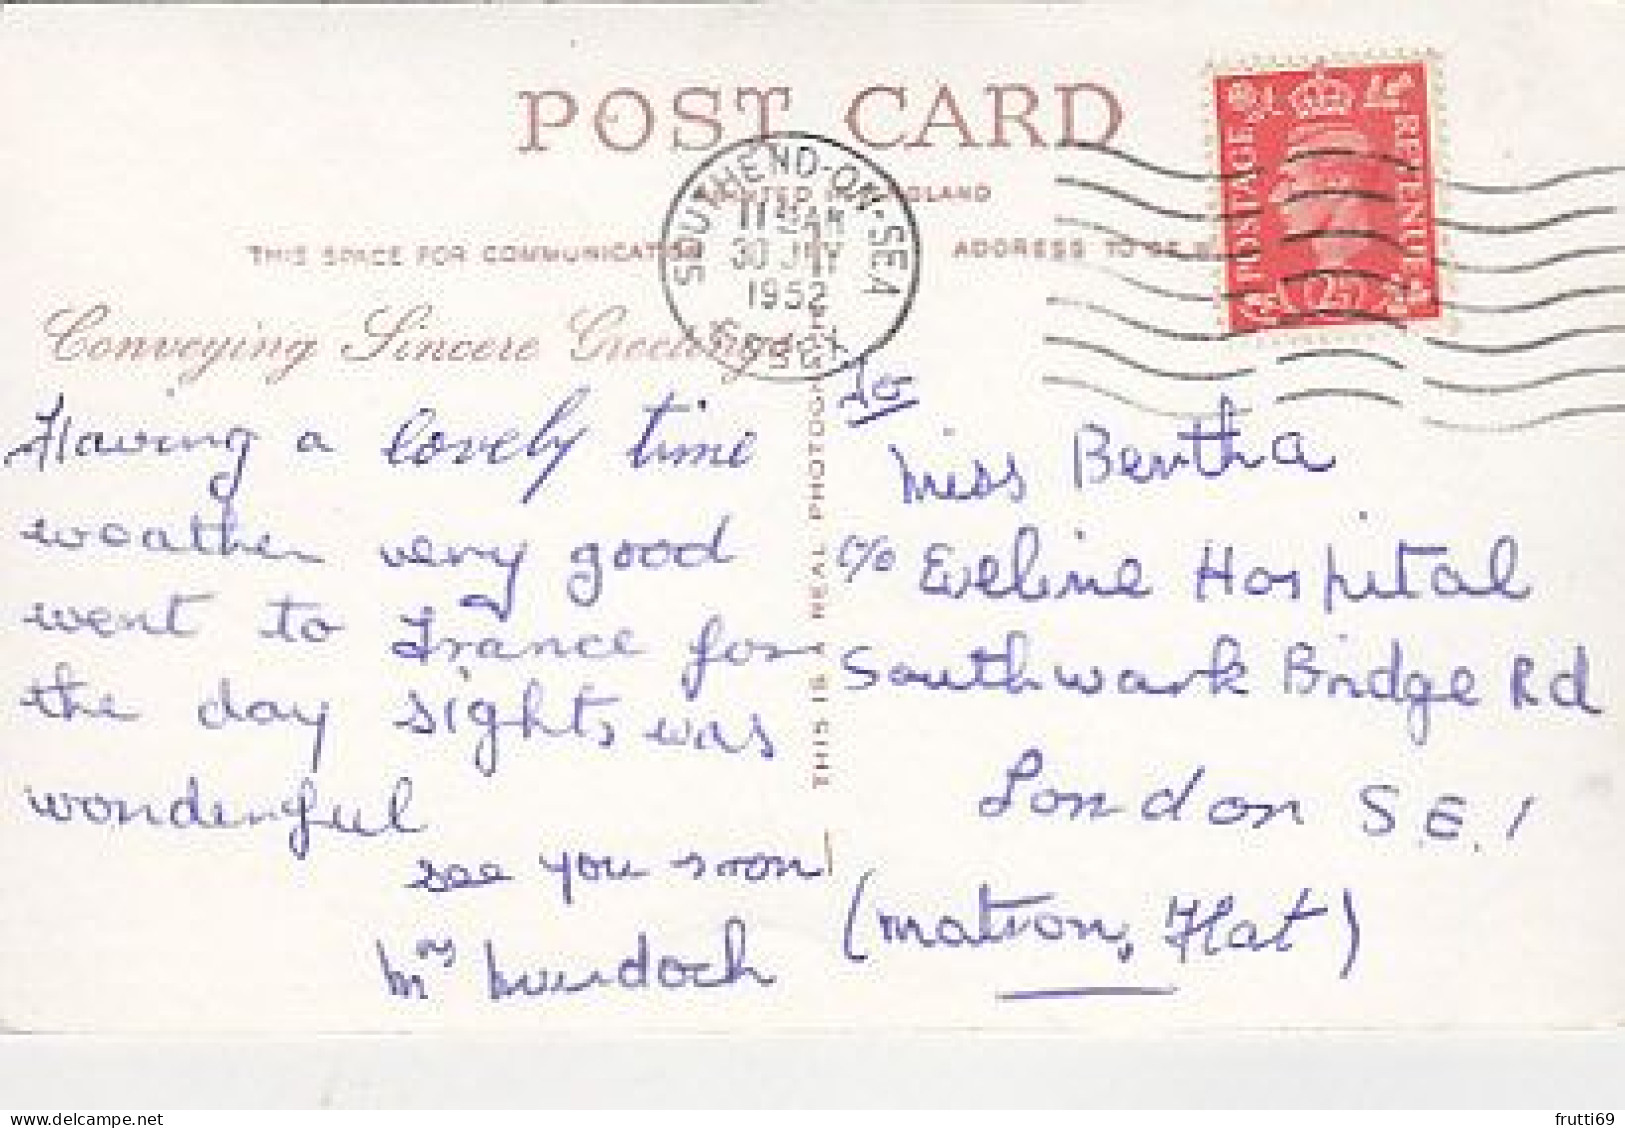 POST CARD
THIS SPACE FOR COMMUNICATION
ADDRESS TO BE
SOUTHEND-ON-SEA
11 AM
30 JLY
1952
ESSEX
POSTAGE
REVENUE
Conveying Sincere Greetings
Having a lovely time
weather very good
went to France for
the day sights was
wonderful
see you soon
Mrs Murdoch
THIS IS A REAL PHOTOGRAPH
To
Miss Bertha
c/o Eveline Hospital
Southwark Bridge Rd
London S.E.1
(Matron, Flat)
www.delcampe.net
frutti69